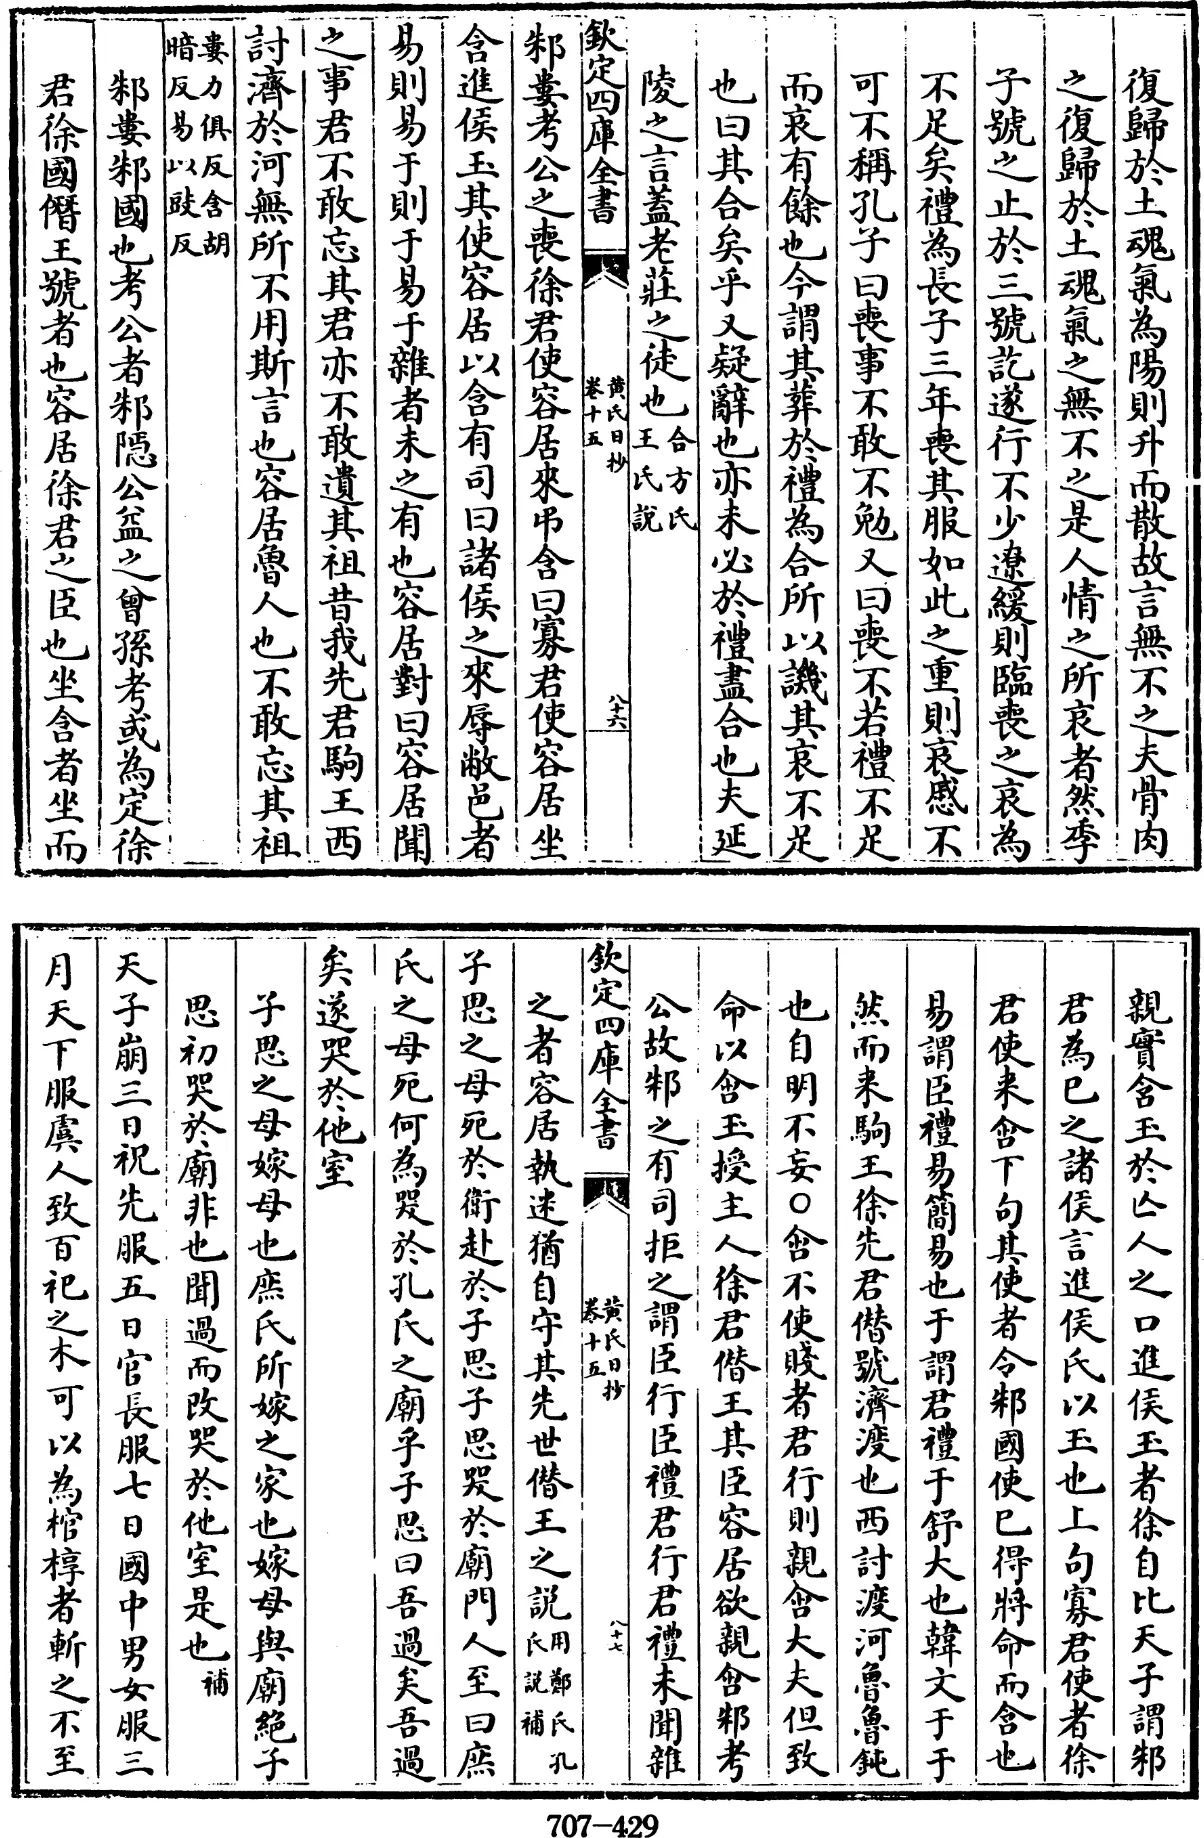 復歸於土魂氣為陽則升而散故言無不之夫骨肉
之復歸於土魂氣之無不之是人情之所哀者然季
子號之止於三號訖遂行不少遼緩則臨喪之哀為
不足矣禮為長子三年喪其服如此之重則哀慼不
可不稱孔子曰喪事不敢不勉又曰喪不若禮不足
而哀有餘也今謂其葬於禮為合所以譏其哀不足
也曰其合矣乎又疑辭也亦未必於禮盡合也夫延
陵之言蓋老莊之徒也合方氏
王氏說
欽定四庫全書
黄氏日抄
卷十五
八十六
邾婁考公之喪徐君使容居來弔含曰寡君使容居坐
含進侯玉其使容居以含有司曰諸侯之來辱敝邑者
易則易于則于易于雜者未之有也容居對曰容居聞
之事君不敢忘其君亦不敢遺其祖昔我先君駒王西
討濟於河無所不用斯言也容居魯人也不敢忘其祖
婁力俱反含胡
暗反易以豉反
邾婁邾國也考公者邾隱公益之曾孫考或為定徐
君徐國僭王號者也容居徐君之臣也坐含者坐而
親實含玉於亾人之口進侯玉者徐自比天子謂邾
君為已之諸侯言進侯氏以玉也上句寡君使者徐
君使来含下句其使者令邾國使已得將命而含也
易謂臣禮易簡易也于謂君禮于舒大也韓文于于
然而来駒王徐先君僭號濟渡也西討渡河魯魯鈍
也自明不妄○含不使賤者君行則親含大夫但致
命以含玉授主人徐君僭王其臣容居欲親含邾考
公故邾之有司拒之謂臣行臣禮君行君禮未聞雜
欽定四庫全書
黄氏日抄
卷十五
八十七
之者容居執迷猶自守其先世僭王之説用鄭氏孔
氏説補
子思之母死於衛赴於子思子思哭於廟門人至曰庶
氏之母死何為哭於孔氏之廟乎子思曰吾過矣吾過
矣遂哭於他室
子思之母嫁母也庶氏所嫁之家也嫁母與廟絶子
思初哭於廟非也聞過而改哭於他室是也補
天子崩三日祝先服五日官長服七日國中男女服三
月天下服虞人致百祀之木可以為棺椁者斬之不至
707-429